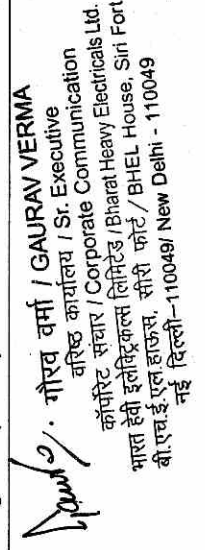 गौरव वर्मा / GAURAV VERMA
वरिष्ठ कार्यालय / Sr. Executive
कॉर्पोरेट संचार / Corporate Communication
भारत हेवी इलेक्ट्रिकल्स लिमिटेड / Bharat Heavy Electricals Ltd.
बी.एच.ई.एल.हाऊस, सीरी फोर्ट / BHEL House, Siri Fort
नई दिल्ली–110049/ New Delhi - 110049